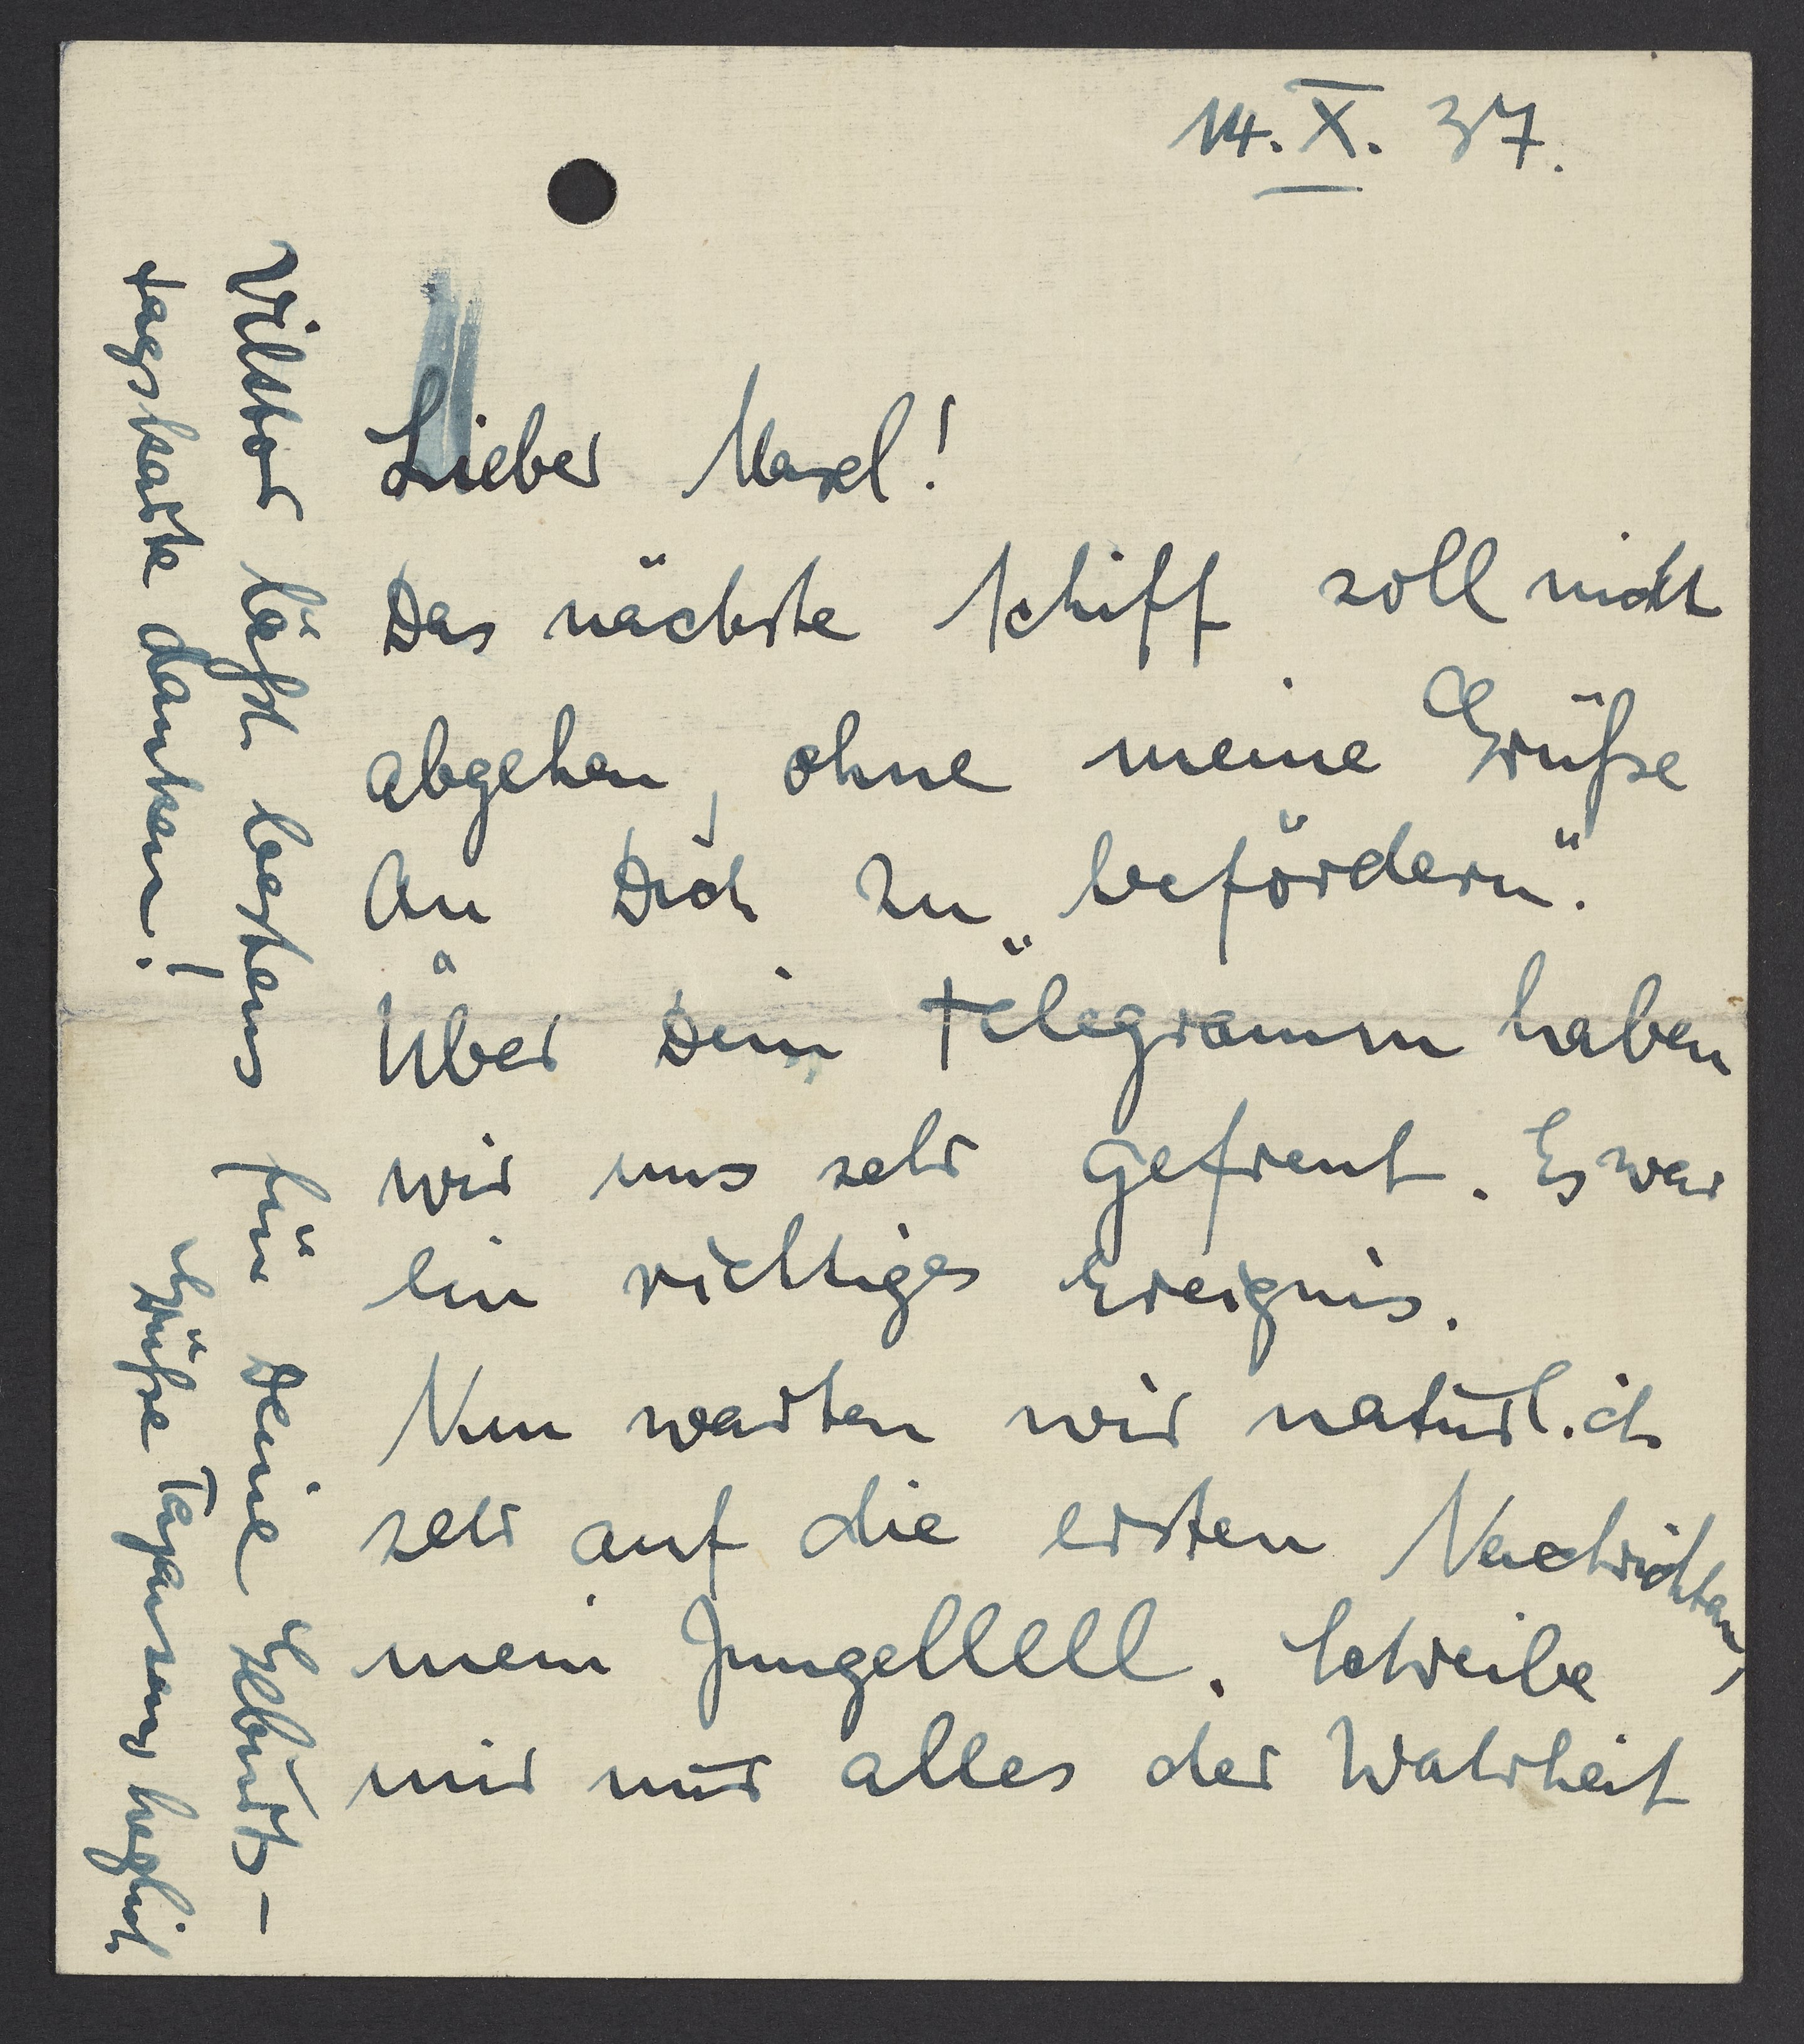 14. X. 37.
Lieber Maxel!
Das nächste Schiff soll nicht
abgehen, ohne meine Grüße
an Dich zu „befördern".
Über Dein Telegramm haben
wir uns sehr gefreut. Es war
ein richtiges Ereignis.
Nun warten wir natürlich
sehr auf die ersten Nachrichten,
mein Jungellell. Schreibe
mir nur alles der Wahrheit
Viktor läßt bestens für Deine Geburts-
tagskarte danken!
Grüße herzlich